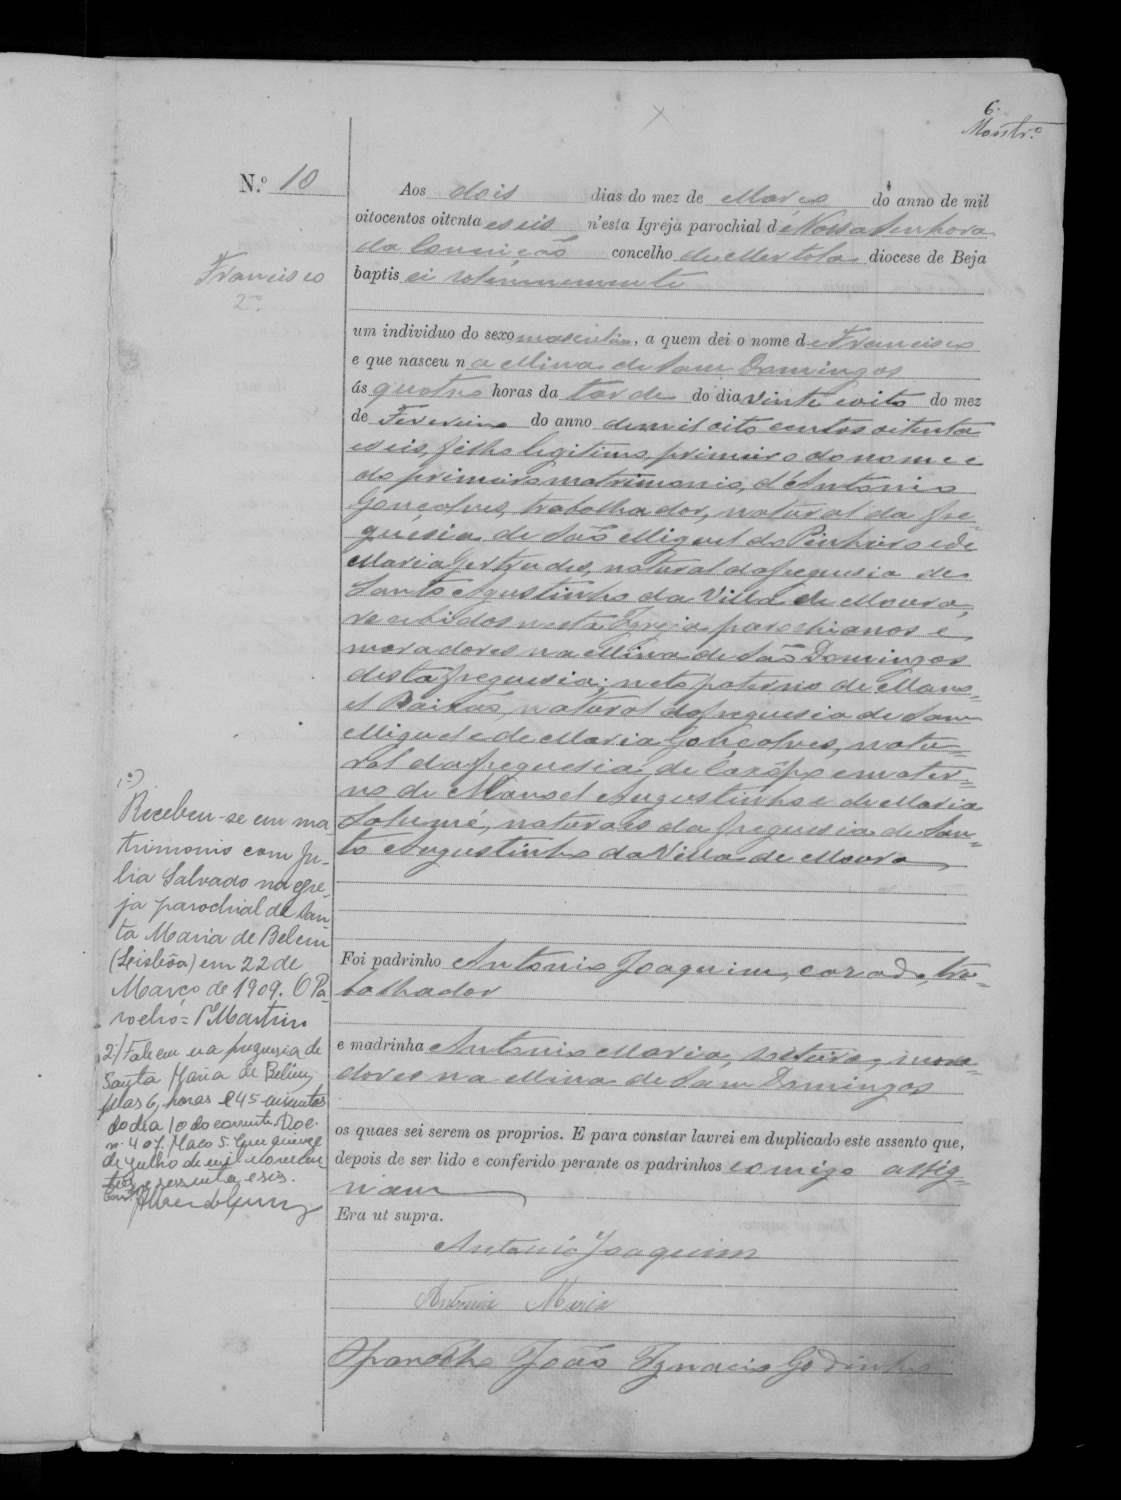 6.
Monstr.º
N.º 10
Francisco
2º
Aos dois dias do mez de Março do anno de mil
oitocentos oitenta e seis n'esta Igreja parochial de Nossa Senhora
da Conceição concelho de Mertola diocese de Beja
baptisei solemnemente
um individuo do sexo masculino, a quem dei o nome de Francisco
e que nasceu na Mina de Sam Domingos
ás quatro horas da tarde do dia vinte e oito do mez
de Fevereiro do anno de mil oito centos oitenta
e seis, filho legitimo, primeiro do nome e
do primeiro matrimonio, d'Antonio
Gonçalves, trabalhador, natural da fre=
guesia de São Miguel do Pinheiro e de
Maria Gertrudes, natural da freguesia de
Santo Agustinho da Villa de Moura,
recebidos nesta Igreja, parochianos e
moradores na Mina de São Domingos
desta freguesia; neto paterno de Mano=
el Paixão, natural da freguesia de Sam
Miguel e de Maria Gonçalves, natu=
ral da freguesia de e mater=
no de Manoel Augustinho e de Maria
Salumé, naturaes da freguesia de San=
to Augustinho da Villa de Moura
Foi padrinho Antonio Joaquim, casado, tra=
balhador
e madrinha Antonia Maria, solteira, mora=
dores na Mina de Sam Domingos
os quaes sei serem os proprios. E para constar lavrei em duplicado este assento que,
depois de ser lido e conferido perante os padrinhos comigo assig=
nam
Era ut supra.
Antonio Joaquim
Antonia Maria
O parocho João Ignacio Godinho
1º)
Recebeu-se em ma
trimonio com Ju-
lia Salvado na egre-
ja parochial de San
ta Maria de Belem
(Lisbôa) em 22 de
Março de 1909. O Pa-
rocho = Martins
2º) Faleceu na freguesia de
Santa Maria de Belem,
pelas 6, horas e 45 minutos
do dia 10 do corrente. Doc.
nº 407. Maco 5. quinze
de Julho de mil novecen
tos e sessenta e seis.